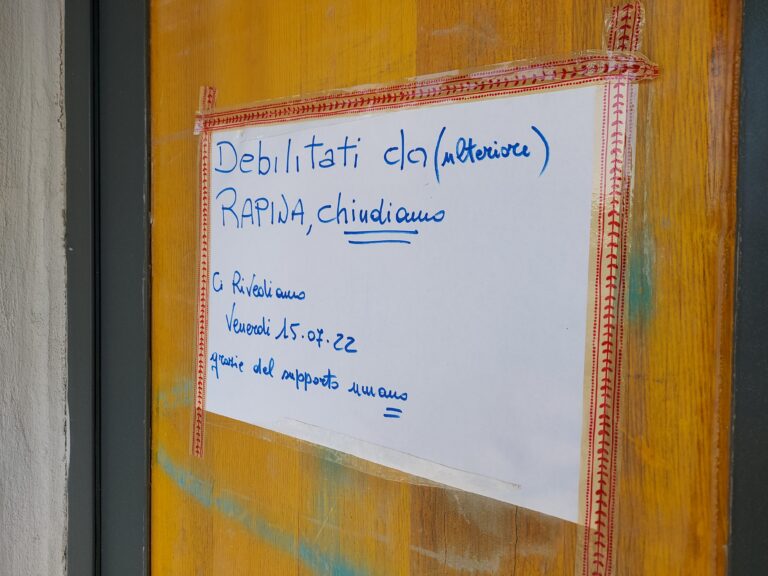 Debilitati da (ulteriore)
RAPINA, chiudiamo
Ci Rivediamo
Venerdi 15.07.22
grazie del supporto umano